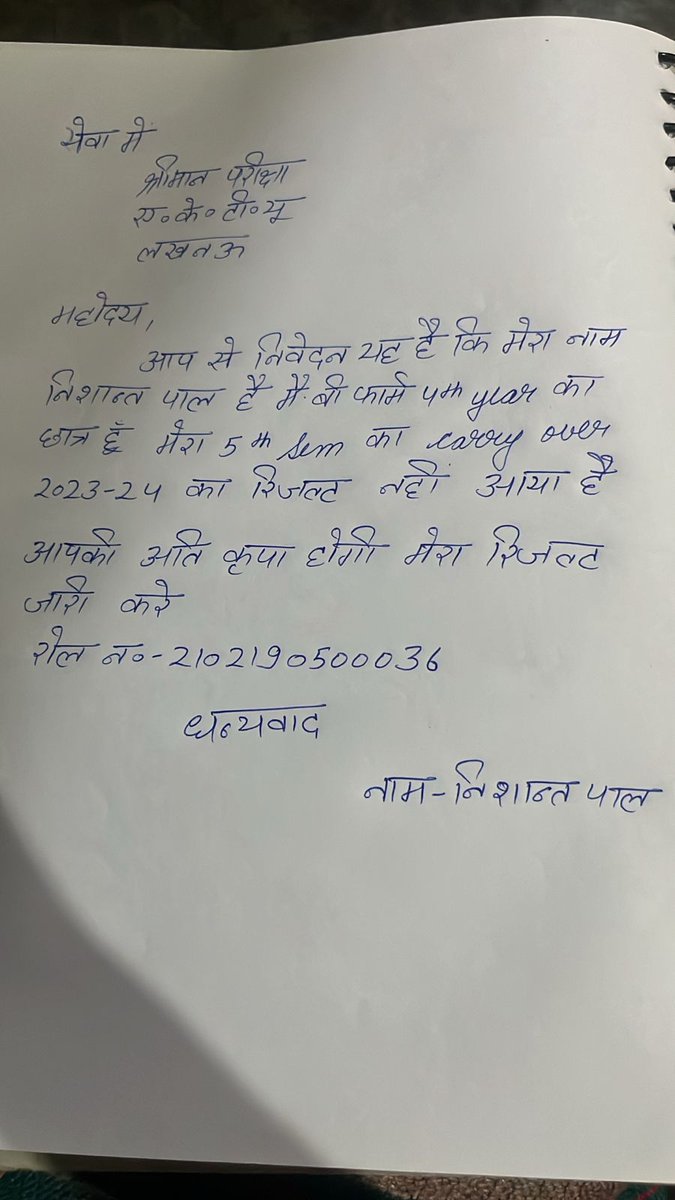 सेवा में
श्रीमान परीक्षा
ए॰के॰टी॰यू
लखनऊ
महोदय,
आप से निवेदन यह है कि मेरा नाम
निशान्त पाल है मैं बी फार्म 4th year का
छात्र हूँ मेरा 5th Sem का carry over
2023-24 का रिजल्ट नहीं आया है
आपकी अति कृपा होगी मेरा रिजल्ट
जारी करे
रोल न०-2102190500036
धन्यवाद
नाम-निशान्त पाल